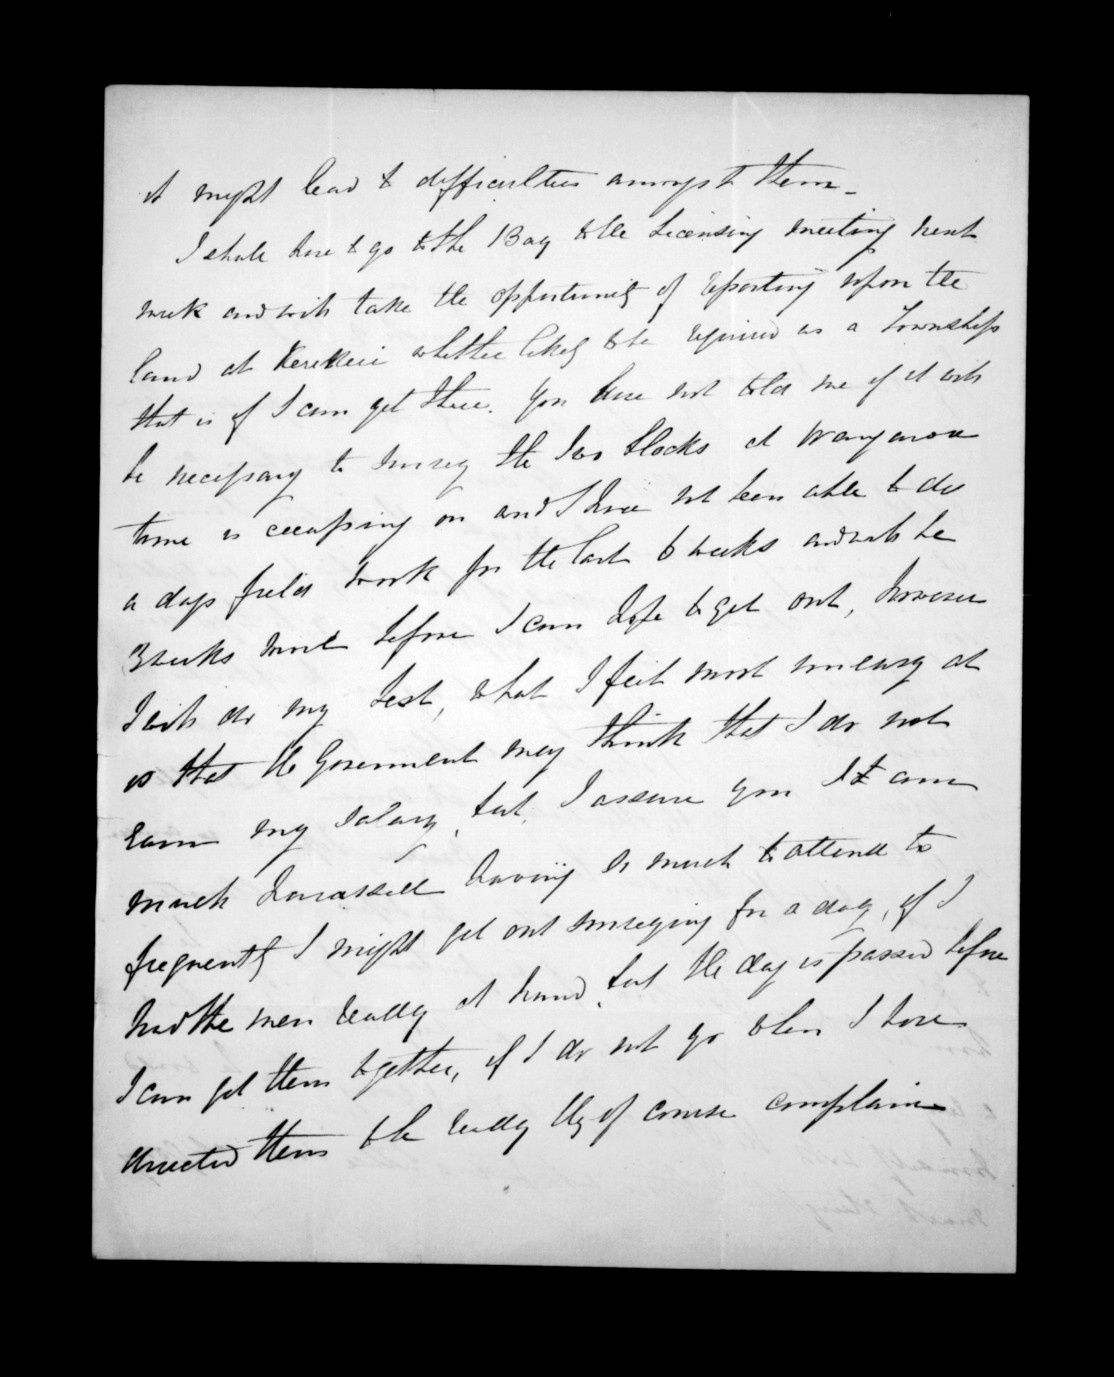 it might lead to difficulties amongst them_
I shall have to go to the Bay to the Licensing meeting next
week and will take the opportunity of reporting upon the
land at Kerikeri whether likely to be required as a Township
that is if I can get there. You have not told me if it will
be necessary to survey the two blocks at Wangaroa
time is creeping on and I have not been able to do
a days field work for the last 6 weeks and will be
3 weeks more before I can hope to get out, however
I will do my best, what I feel most uneasy at
is that the Government may think that I do not
earn my salary, but I assure you I am
much harassed having so much to attend to
frequently I might get out surveying for a day, if I
had the men ready at hand, but the day is passed before
I can get them together, if I do not go when I have
directed them to be ready they of course complain